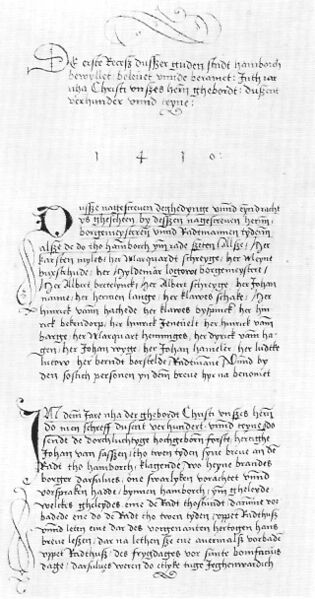 De erste Recesz dusszer guden stadt hamborch
bewyllet: belevet unnde beramet: Inth iar
nha Christi unszes hern ghebordt: dusent
verhunder unnd teyne:
1410:
Dussze nagescreven deghedynge unnd eyndracht
ys ghescheen by desszen nagescreven heren:
borgemeysteren unnd Radtmannen tydenn
alsze de do tho hamborch ym rade szeten Alsze / Her
karsten myles: her Marquardt schreyge: her Meyne
buxstehude: her / Hyldemar logowe borgemeystere /
Her Albert bretelynck: her Albert schreyge her Johan
nanne: her hermen lange: her klawes schake: her
hinrick vann hachede her klawes her hin
rick bekendorp: her hinrick Jenevelt her hinrick vam
barge her Marquart hennynges, her dyrick vam ha-
gen: her Johan voyge her Johan hameler her ludeke
lutkow her berndt borstelde Radtmann Unnd by
den sostich personen yn dem breve hyr na benomet
In dem Jare nha der ghebordt Christi unszes hern
do men screeff dusent verhundert: unnd teyne do
sende de dorchluchtyge hochgeborn forste, hertighe
Johan van sassen / tho twen tyden syne breve an de
Radt tho hamborch, klagende wo heyne brandes
borger darsulves, one swarlyken vorachtet unnd
vorspraken hadde / bynnen hamborch, ym gheleyde
welckes gheleydes eme de Radt thostundt darumme vor
badede ene do de Radt tho twen tyden uppet Radthusz
unnd leten eme dar des vorgenanten hertogen hans
breve leszen, dar na lethen sze ene avermalsz vorbaden
uppet Radthusz / des frygdages vor sunte bonifacius
dage / darsulves weren do etlyke tuge Jeghenwardich